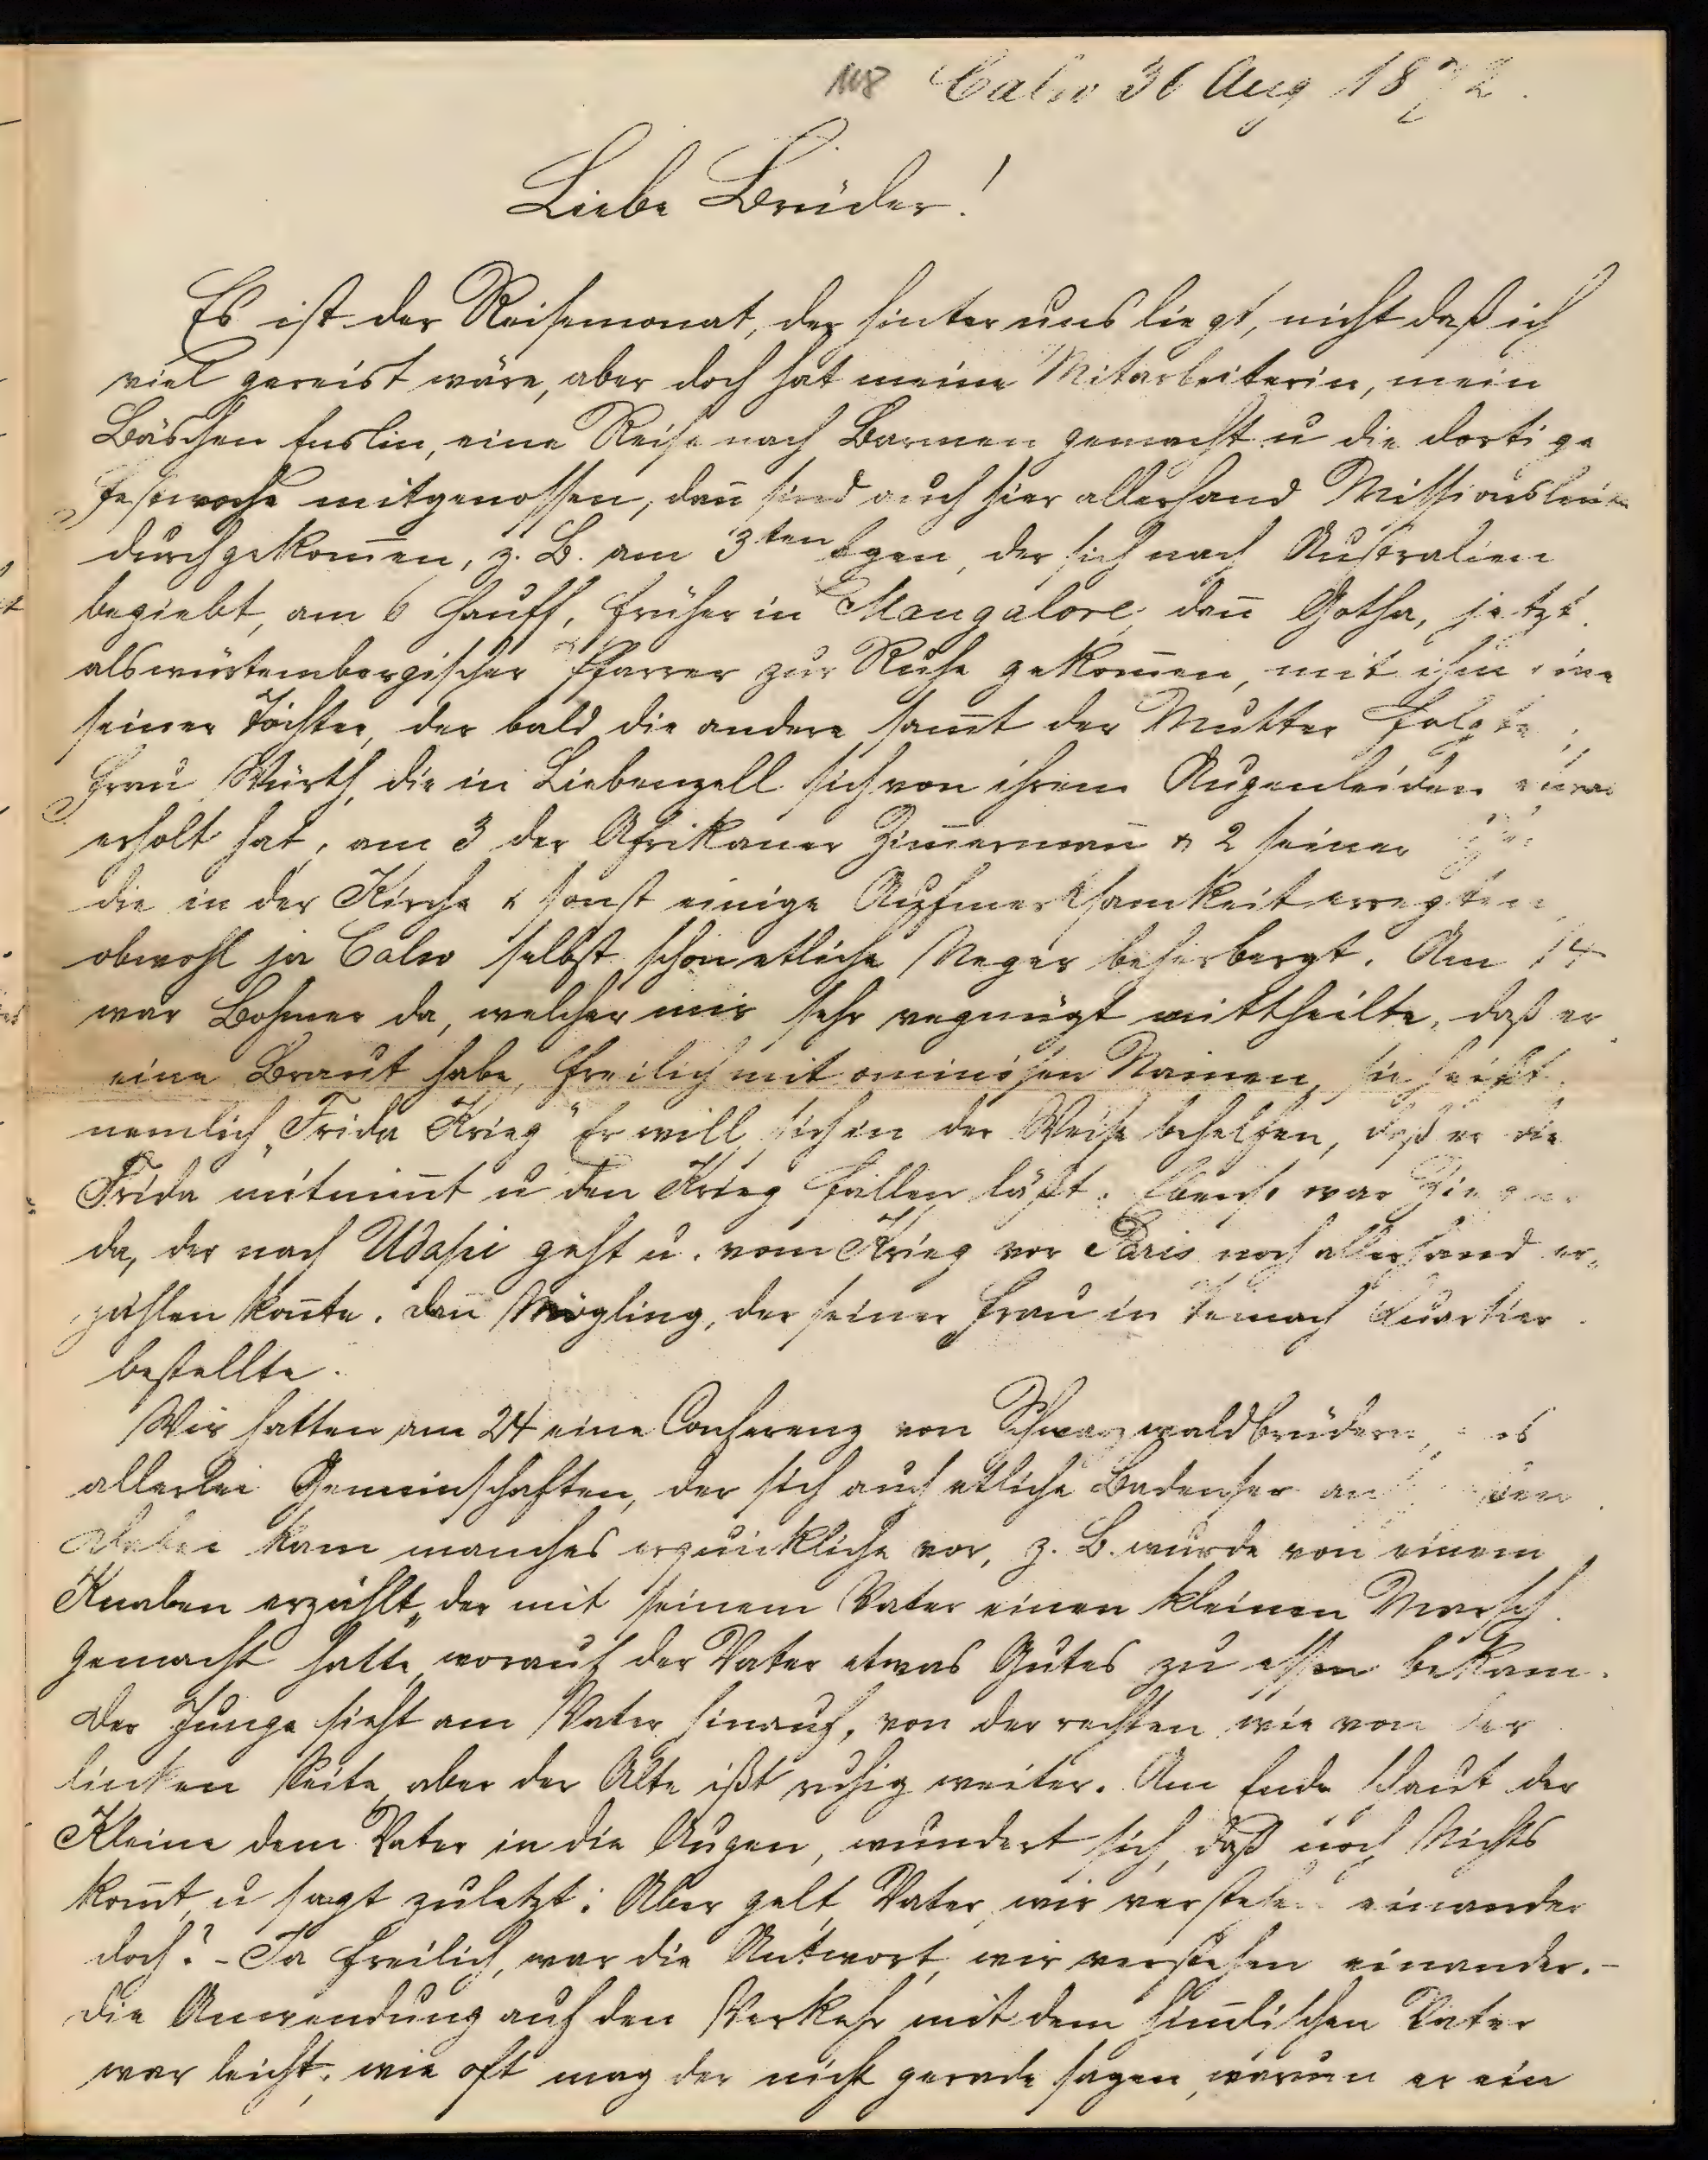 108 Calw 30 Aug 1872.
Liebe Brüder!
Es ist der Reisemonat, der hinter uns liegt, nicht daß ich
viel gereist wäre, aber doch hat meine Mitarbeiterin, mein
Bäschen Enslin, eine Reise nach Barmen gemacht u die dortige
Festwoche mitgenossen, dañ sind auch hier allerhand Missionsleute
durchgekom̄en, z. B. am 3ten der sich nach Australien
begiebt, am 6 Hauff, früher in Mangalore, dañ Gotha, jetzt
als würtembergischer Pfarrer zur Ruhe gekom̄en, mit ihm eine
seiner Töchter, der bald die andere sam̄t der Mutter folgte;
Frau Würth, die in Liebenzell sich von ihrem Augenleiden etwas
erholt hat, am 3 der Afrikaner Zim̄ermañ & 2 seiner
die in der Kirche & sonst einige Aufmerksamkeit erregten,
obwohl ja Calw selbst schon etliche Neger beherbergt. Am 14
war Bohner da, welcher mir sehr vegnügt mittheilte, daß er
eine Braut habe, freilich mit ominösen Namen, sie heißt
nemlich „Frida Krieg" Er will sich in der Weise behelfen, daß er die
Frida mitnim̄t u den Krieg fallen läßt. Ebenso war
da, der nach Udapi geht u. vom Krieg vor Paris noch allerhand er„
zählen koñte. Dañ Mögling, der seiner Frau in Teinach Quartier
bestellte.
Wir hatten am 24 eine Conferenz von Schwarzwaldbrüdern,
allerlei Gemeinschaften, der sich auch etliche Badenser
Dabei kam manches erquickliche vor, z. B. wurde von einem
Knaben erzählt, der mit seinem Vater einen kleinen Marsch
gemacht hatte, worauf der Vater etwas Gutes zu essen bekam.
Der Junge sieht am Vater hinauf, von der rechten wie von der
linken Seite, aber der Alte ißt ruhig weiter. Am Ende schaut der
Kleine dem Vater in die Augen, wundert sich, daß noch Nichts
kom̄t, u sagt zuletzt: Aber gelt, Vater, wir verstehen einander
doch? - Ja freilich, war die Antwort, wir verstehen einander. -
Die Anwendung auf den Verkehr mit dem him̄lischen Vater
war leicht; wie oft mag der nicht gerade sagen, warum er ein